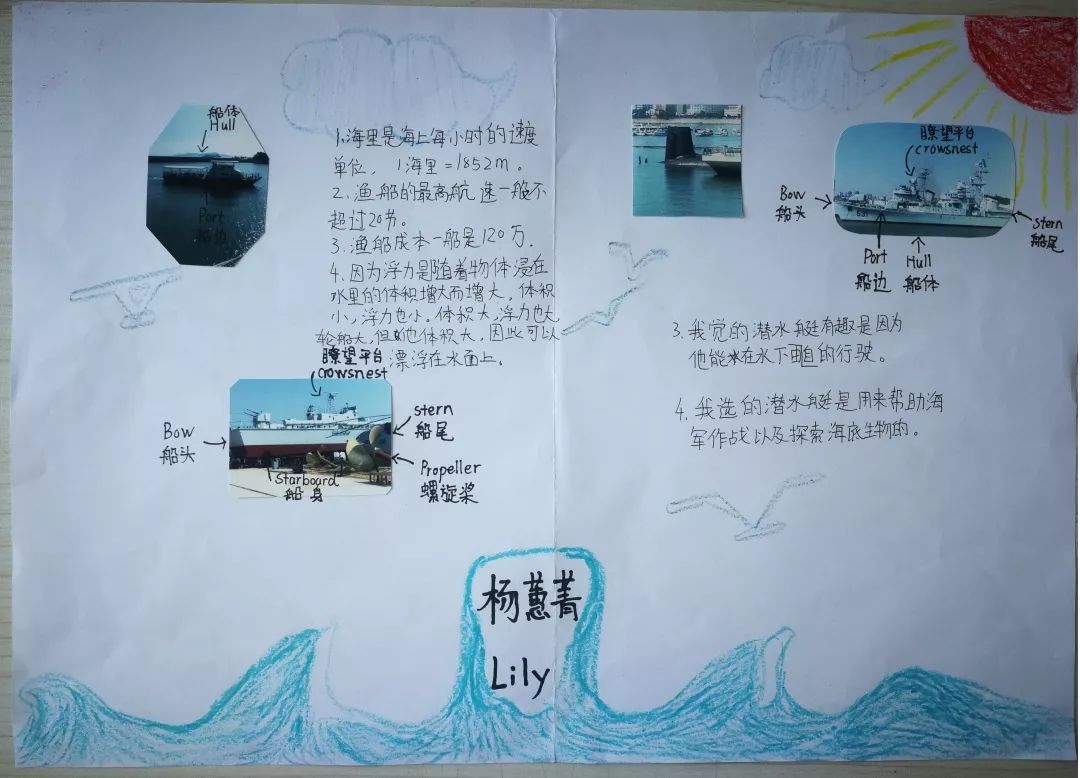 船体
Hull
Port
船边
1.海里是海上每小时的速度
单位，1海里=1852m。
2.渔船的最高航速一般不
超过20节。
3.渔船成本一般是120万.
4.因为浮力是随着物体浸在
水里的体积增大而增大。体积
小，浮力也小。体积大，浮力也大
轮船大，但他体积大，因此可以
漂浮在水面上。
瞭望平台
crowsnest
Bow
船头
stern
船尾
Propeller
螺旋桨
Starboard
船身
瞭望平台
crowsnest
Bow
船头
531
stern
船尾
Port
船边
Hull
船体
3.我觉的潜水艇有趣是因为
他能在水下自的行驶。
4.我选的潜水艇是用来帮助海
军作战以及探索海底生物的。
杨蕙菁
Lily